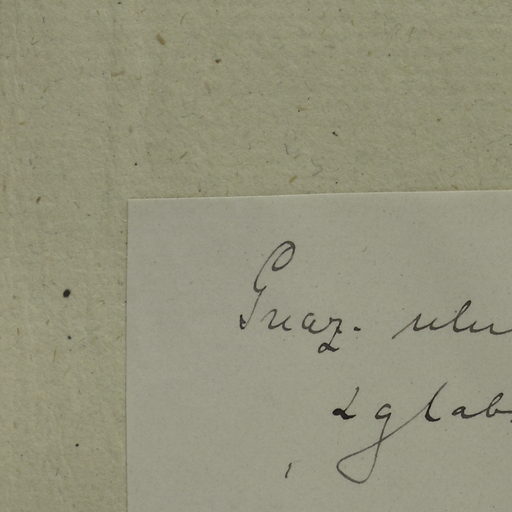 Guaz. ulm
α glab